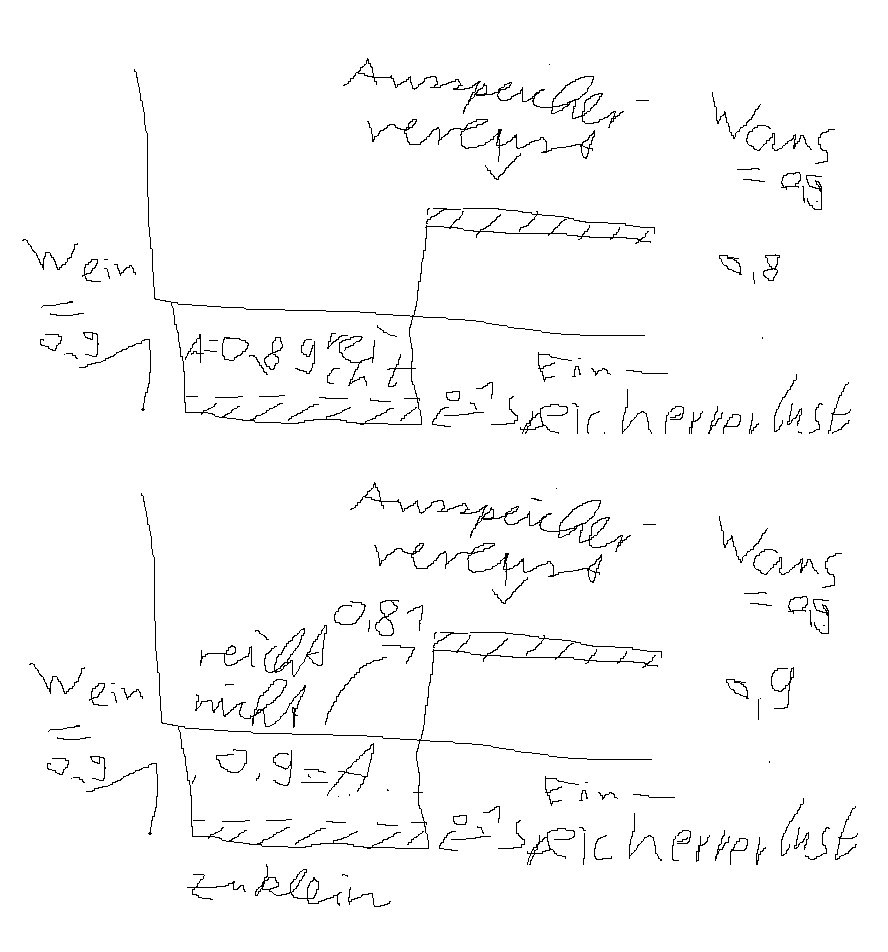 Ausspeicher-
verlust
Waus
= 0,9
Wein
=
0,9
0,8
A=0,8 rei
cht
0,1
Ein-
speicherverlust
Ausspeicher-
verlust
Waus
= 0,9
0,81
reicht
nicht
Wein
=
0,9
0,9
0,9=A
0,1
Ein-
speicherverlust
zu klein